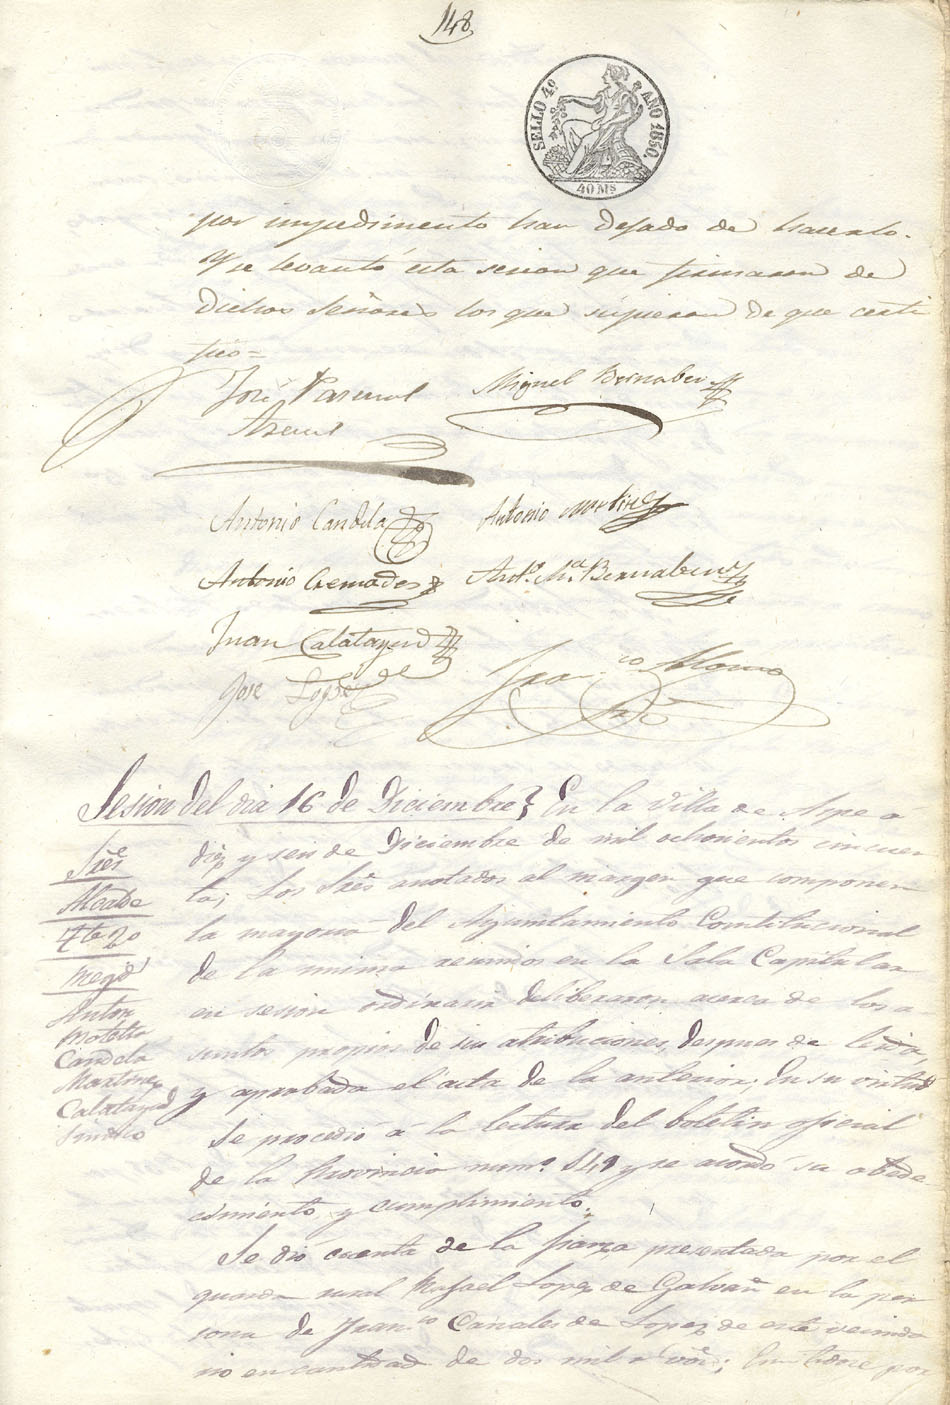 148
SELLO 4º AÑO 1850.
40 Ms
por impedimento han dejado de hacerlo.
Y se levantó esta sesion que firmaron de
dichos Señores los que supieron de que certi
fico=
José Pascual Miguel Bernabeu
Antonio Candela Antonio Martinez
Antonio Cremades Anto. Ma. Bernabeu
Juan Calatayud
Jose Lopez Franco Alonso
Sesion del dia 16 de Diciembre} En la Villa de Aspe a
Sres diez y seis de Diciembre de mil ochocientos cincuen
Alcalde ta; Los Sres anotados al margen que componen
Tte 2o la mayoria del Ayuntamiento Constitucional
de la misma reunidos en la Sala Capitular
Anton en sesion ordinaria deliberaron acerca de los a
Botella
Candela suntos propios de sus atribuciones, despues de leida,
Martinez
Calatayud y aprobada el acta de la anterior; En su virtud
Sindico se procedió á la lectura del boletin oficial
de la Provincia num.o 149 y se acordó su obede
cimiento y cumplimiento.
Se dió cuenta de la fianza presentada por el
guarda rural Rafael Lopez de Galvañ en la per
sona de Fran.co Canales de Lopez de este vecinda
rio en cantidad de dos mil r.s von;